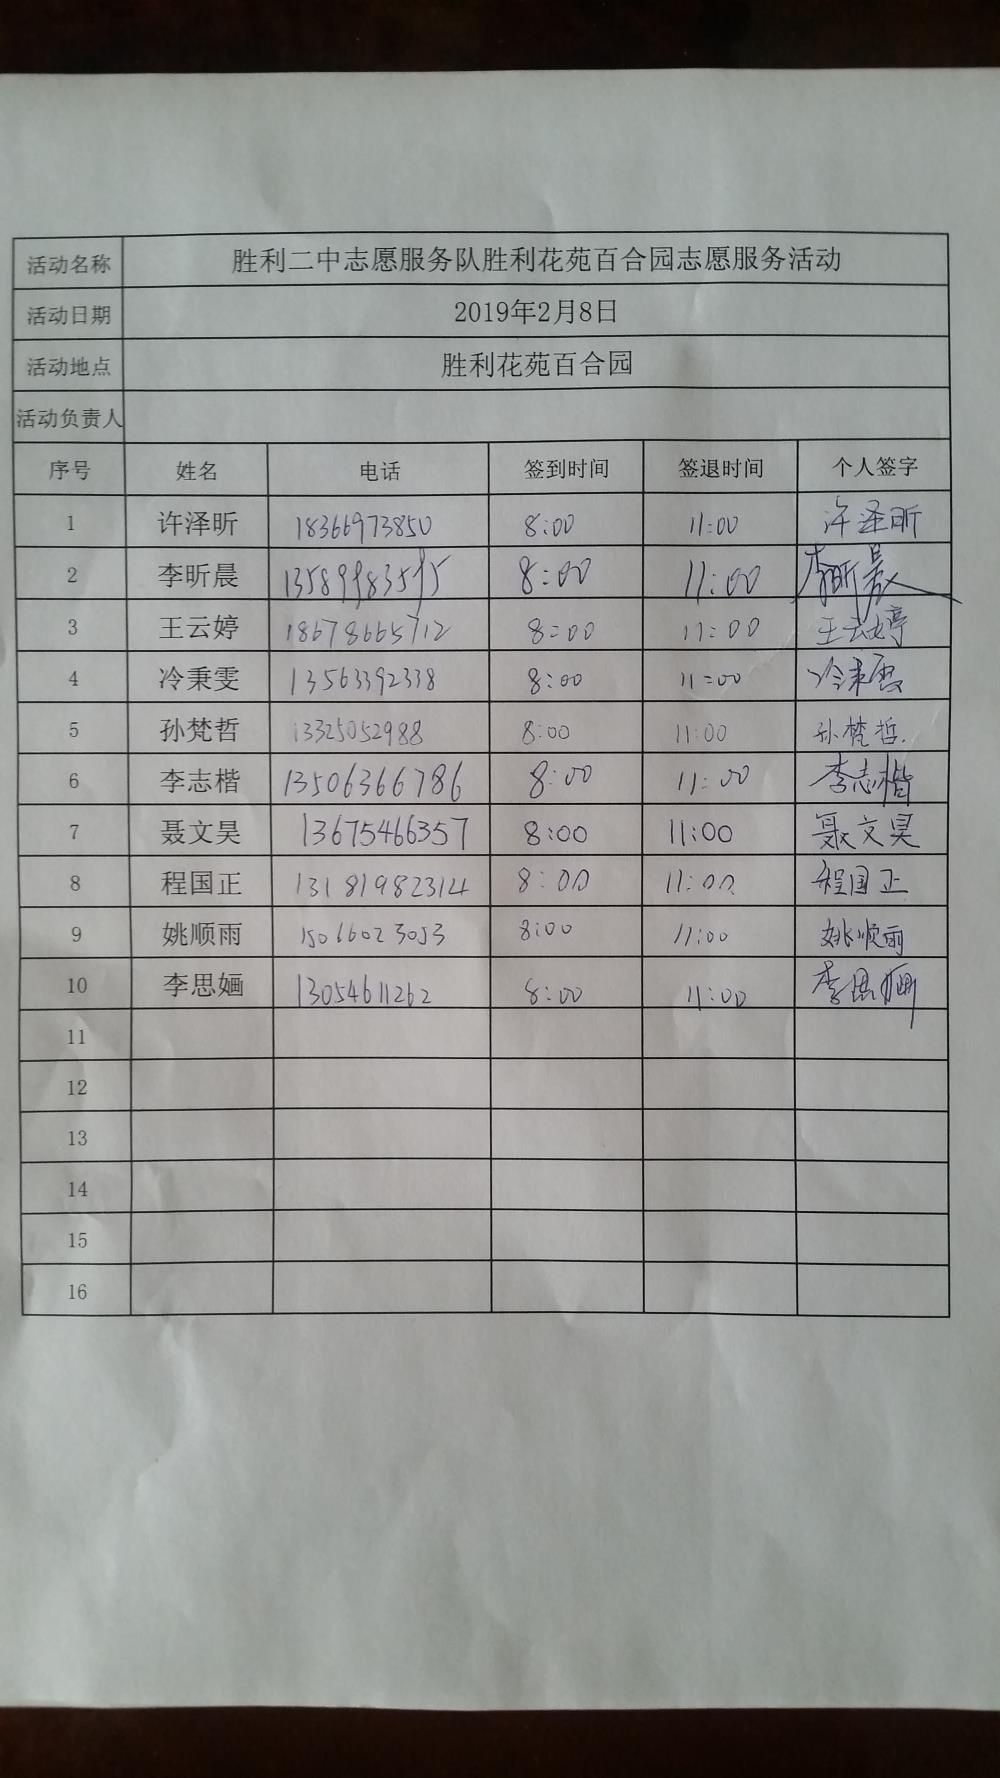 活动名称 胜利二中志愿服务队胜利花苑百合园志愿服务活动
活动日期 2019年2月8日
活动地点 胜利花苑百合园
活动负责人
序号 姓名 电话 签到时间 签退时间 个人签字
1 许泽昕 18366973850 8:00 11:00 许泽昕
2 李昕晨 8:00 11:00 李昕晨
3 王云婷 18678665712 8:00 11:00 王云婷
4 冷秉雯 13563392338 8:00 11:00 冷秉雯
5 孙梵哲 13325052988 8:00 11:00 孙梵哲
6 李志楷 13506366786 8:00 11:00 李志楷
7 聂文昊 13675466357 8:00 11:00 聂文昊
8 程国正 13181982314 8:00 11:00 程国正
9 姚顺雨 15066023053 8:00 11:00 姚顺雨
10 李思婳 13054611262 8:00 11:00 李思婳
11
12
13
14
15
16